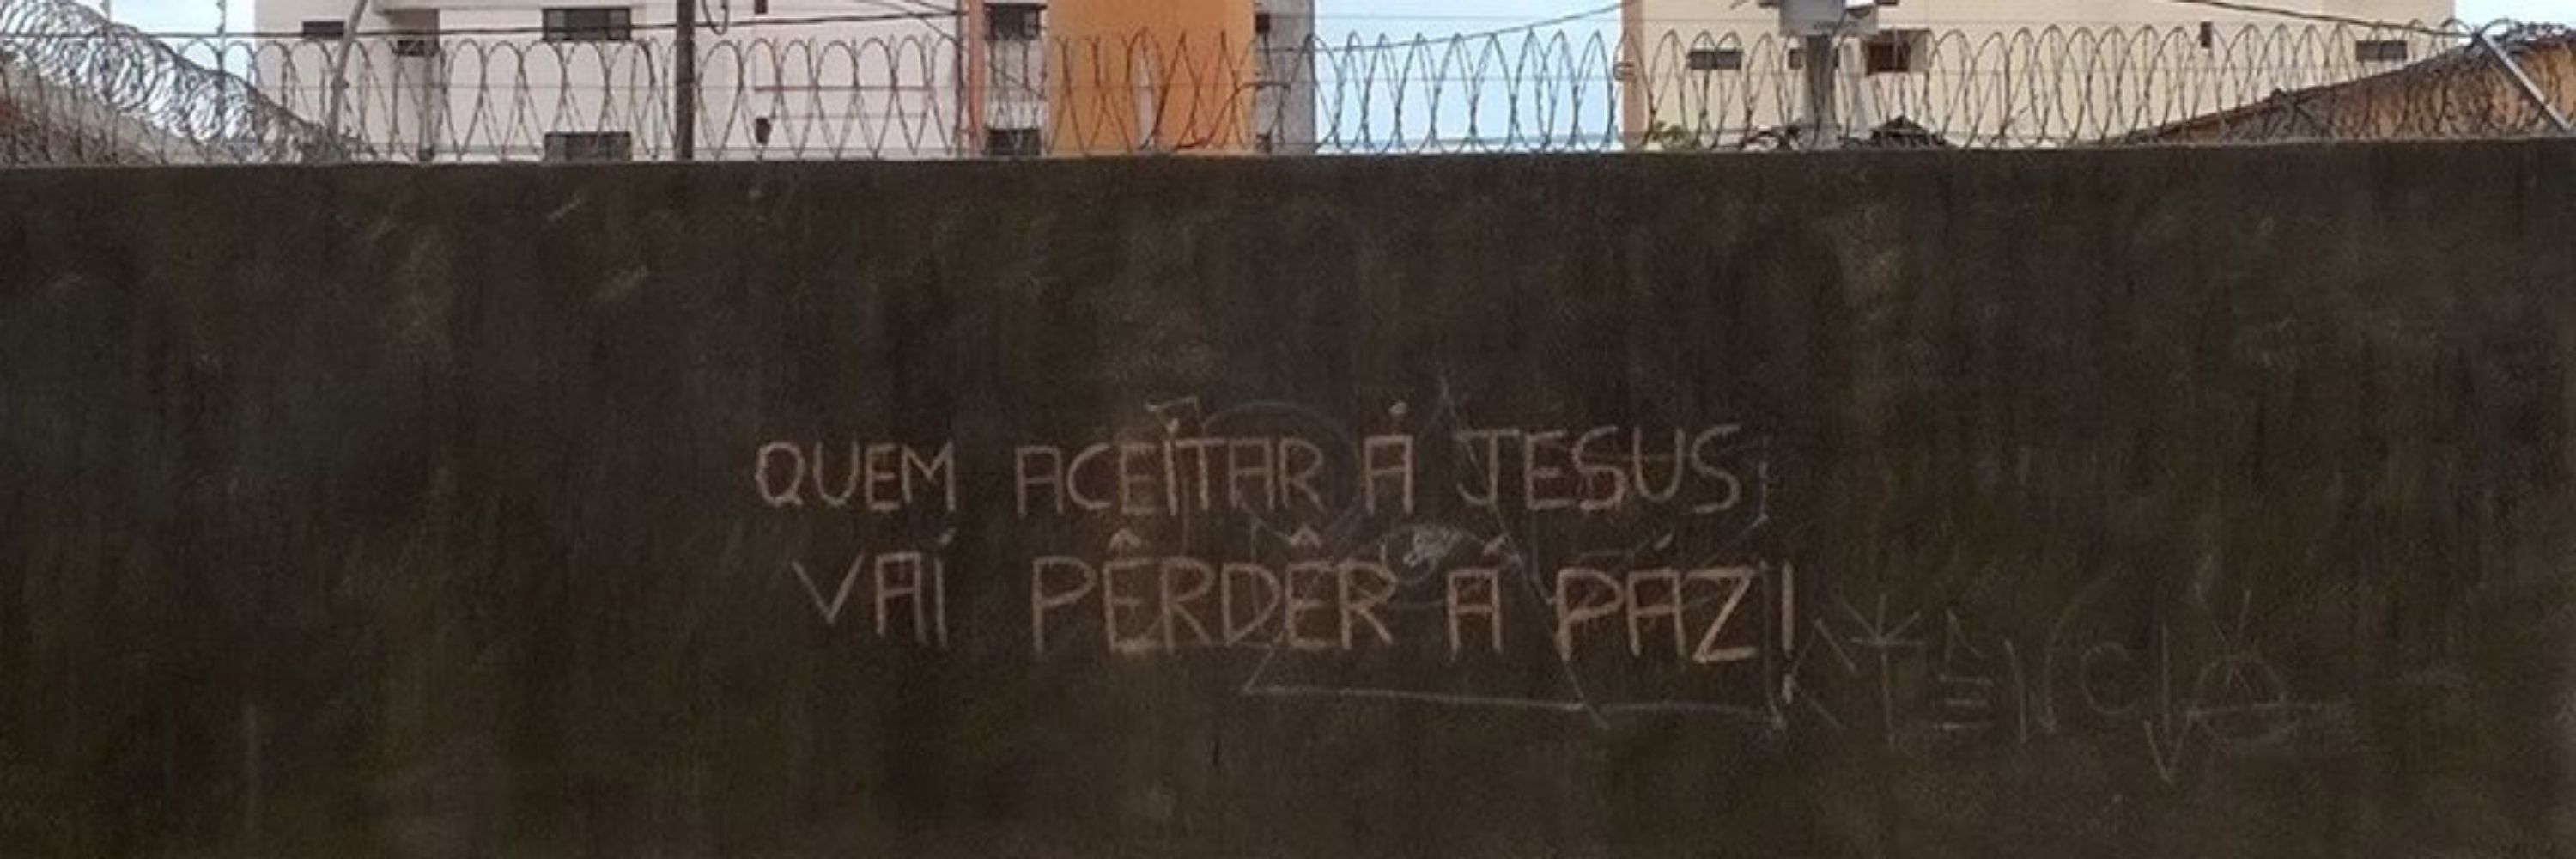 QUEM ACEÍTAR Á JESUS,
VAÍ PÊRDÊR Á PÁZ!